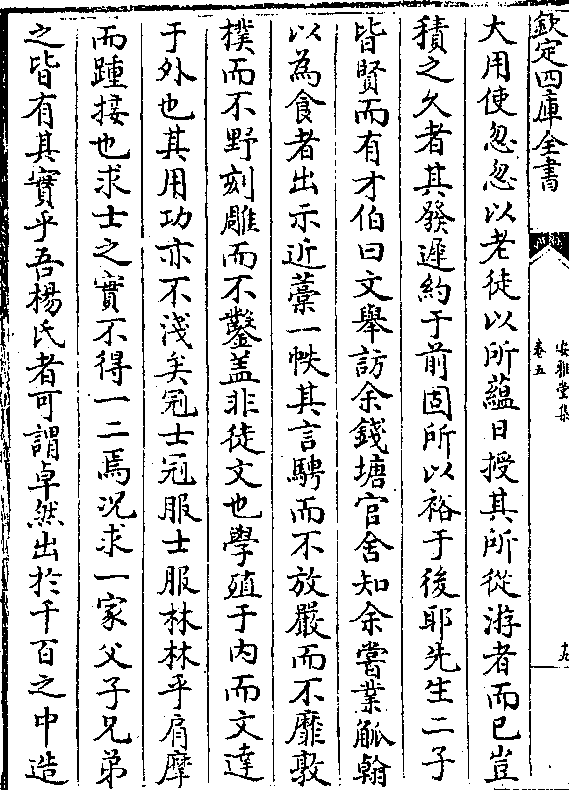 欽定四庫全書
安雅堂集
卷五
十九
大用使忽忽以老徒以所蘊日授其所從游者而已豈
積之久者其發遲約于前固所以裕于後耶先生二子
皆賢而有才伯曰文舉訪余錢塘官舍知余嘗業觚翰
以為食者出示近藁一帙其言騁而不放嚴而不靡敦
樸而不野刻雕而不鑿盖非徒文也學殖于内而文達
于外也其用功亦不淺矣冠士冠服士服林林乎肩摩
而踵接也求士之實不得一二焉况求一家父子兄弟
之皆有其實乎吾楊氏者可謂卓然出於千百之中造